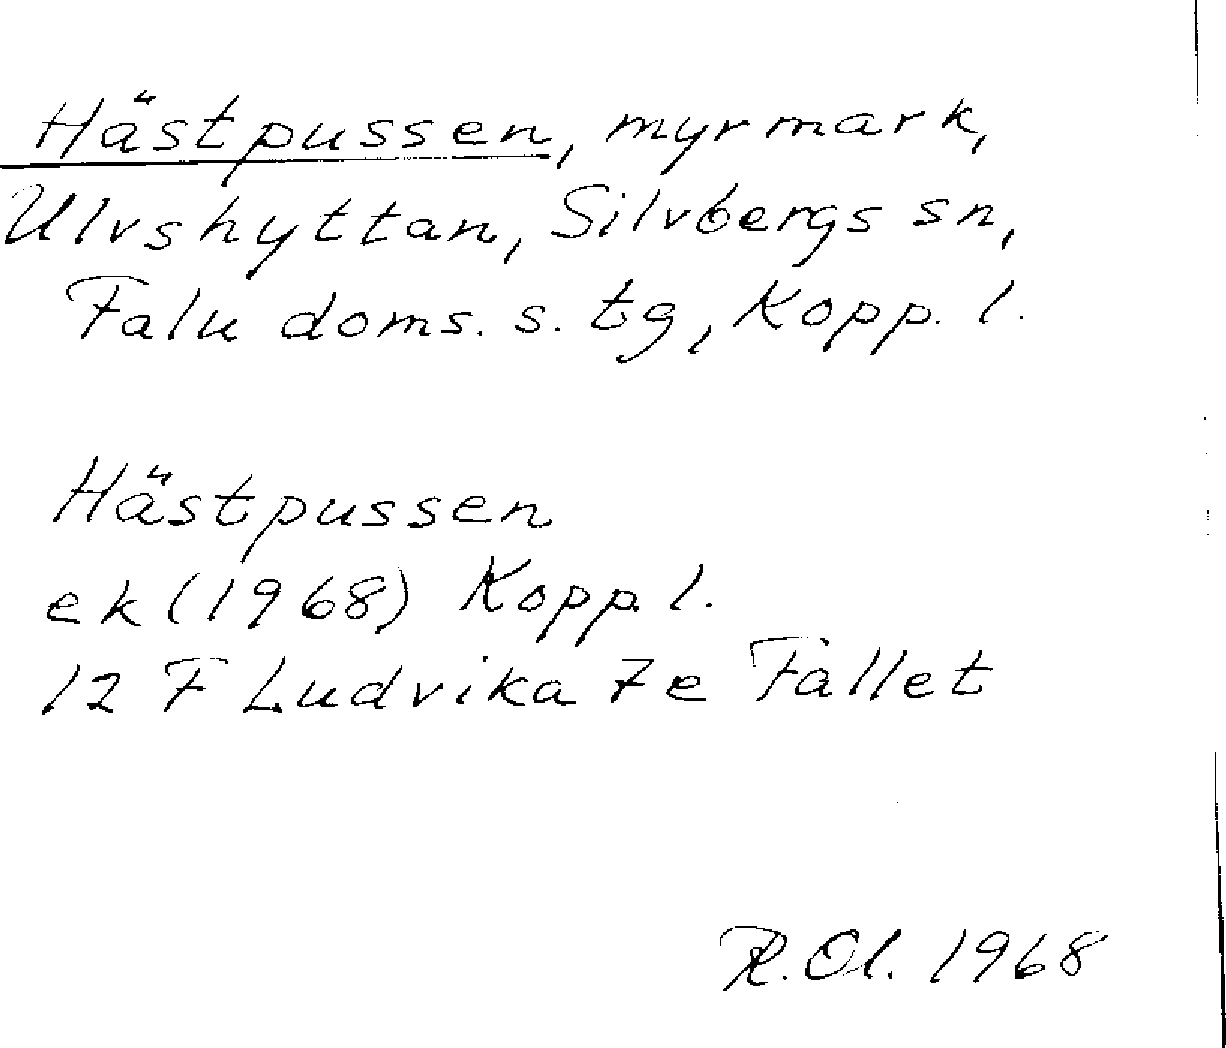 Hästpussen, myrmark,
Ulvshyttan, Silvbergs sn,
Falu doms. s. tg, Kopp. l.
Hästpussen
ek (1968) Kopp. l.
12 F Ludvika 7e Fallet
R. Ol. 1968